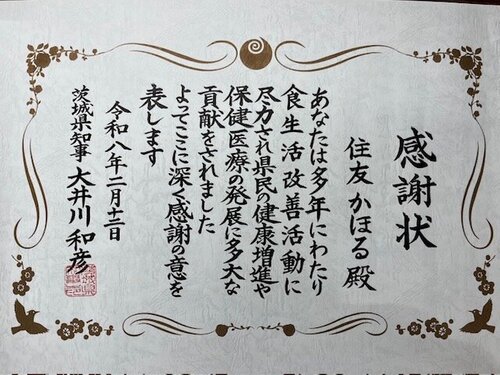 感謝状
住友かほる 殿
あなたは多年にわたり
食生活改善活動に
尽力され県民の健康増進や
保健医療の発展に多大な
貢献をされました
よってここに深く感謝の意を
表します
令和八年二月十三日
茨城県知事 大井川 和彦